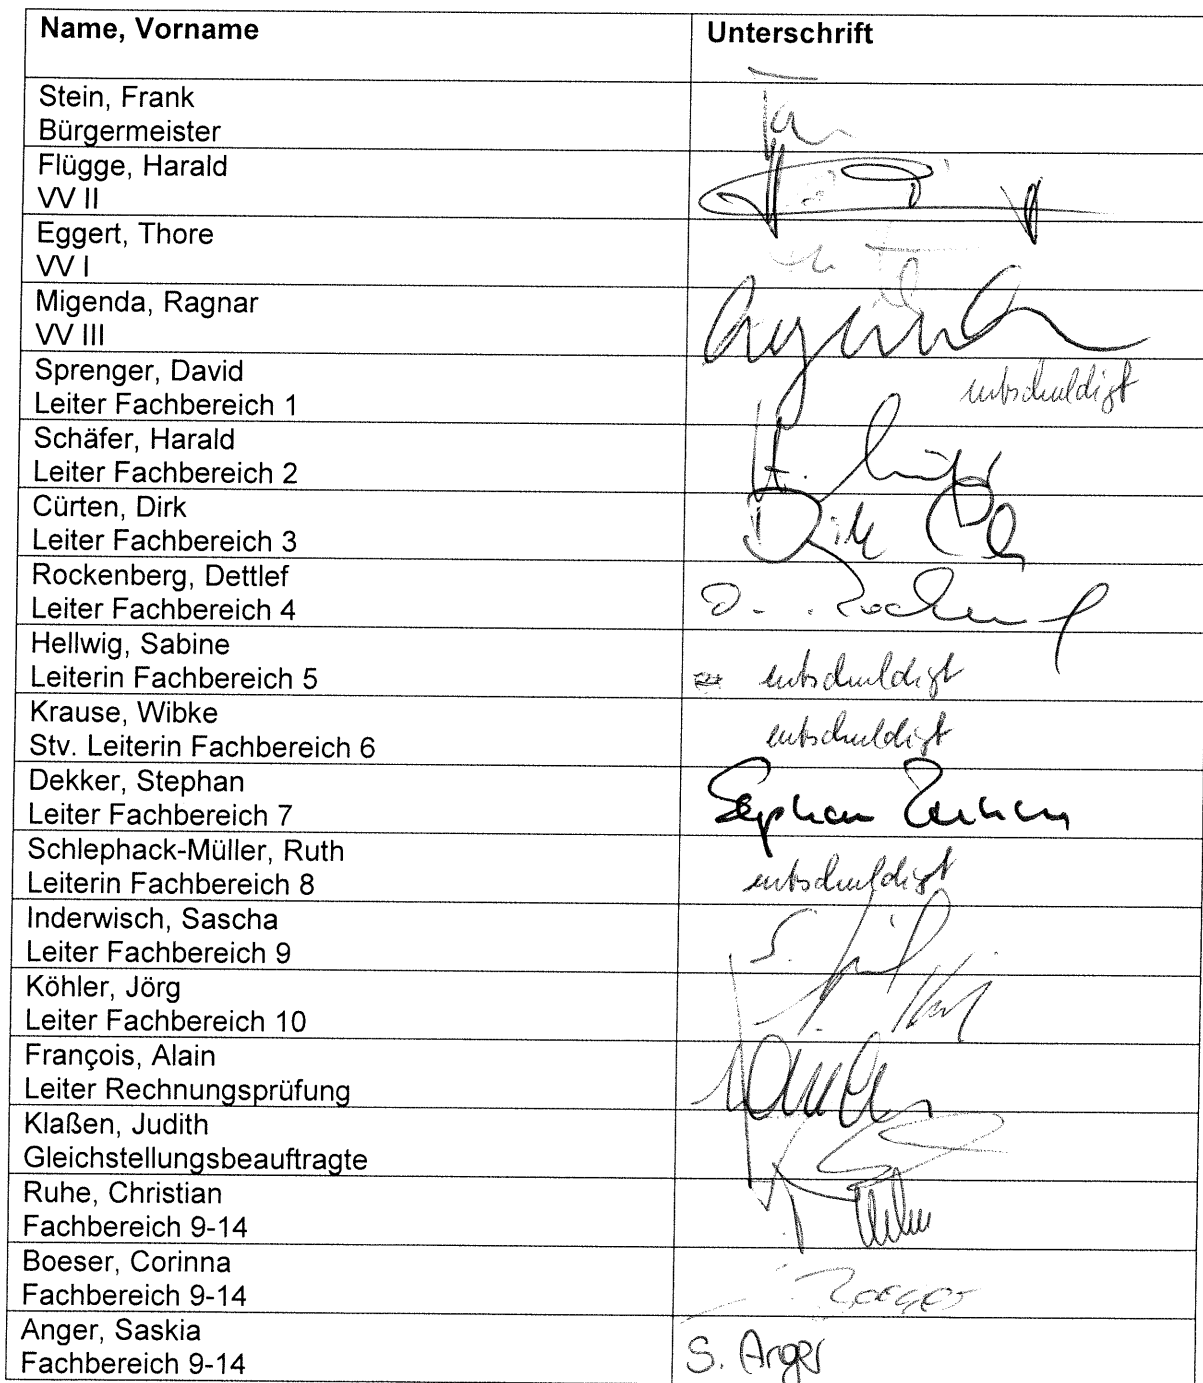 Name, Vorname Unterschrift
Stein, Frank
Bürgermeister
Flügge, Harald
VV II
Eggert, Thore
VV I
Migenda, Ragnar
VV III
Sprenger, David
Leiter Fachbereich 1 entschuldigt
Schäfer, Harald
Leiter Fachbereich 2 H.
Cürten, Dirk
Leiter Fachbereich 3 Dirk
Rockenberg, Dettlef
Leiter Fachbereich 4 D.
Hellwig, Sabine
Leiterin Fachbereich 5 entschuldigt
Krause, Wibke
Stv. Leiterin Fachbereich 6 entschuldigt
Dekker, Stephan
Leiter Fachbereich 7 Stephan
Schlephack-Müller, Ruth
Leiterin Fachbereich 8 entschuldigt
Inderwisch, Sascha
Leiter Fachbereich 9 S.
Köhler, Jörg
Leiter Fachbereich 10
François, Alain
Leiter Rechnungsprüfung
Klaßen, Judith
Gleichstellungsbeauftragte
Ruhe, Christian
Fachbereich 9-14
Boeser, Corinna
Fachbereich 9-14
Anger, Saskia
Fachbereich 9-14 S. Anger